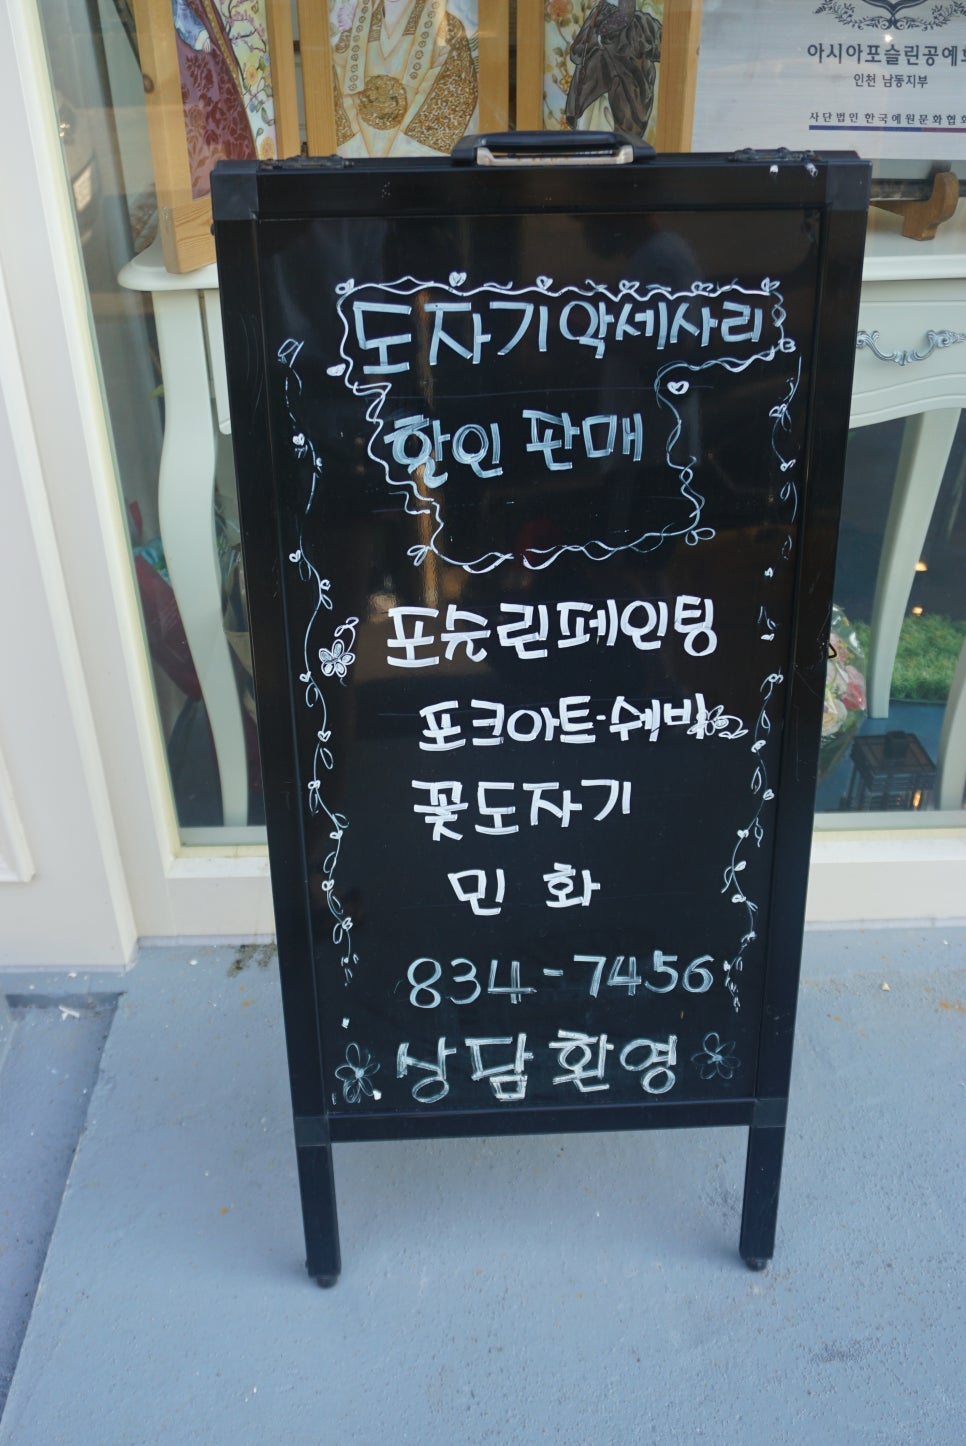 아시아포슬린공예
인천 남동지부
사단법인 한국예원문화협회
도자기악세사리
할인 판매
포슬린페인팅
포크아트·쉐비
꽃도자기
민 화
834-7456
상담 환영